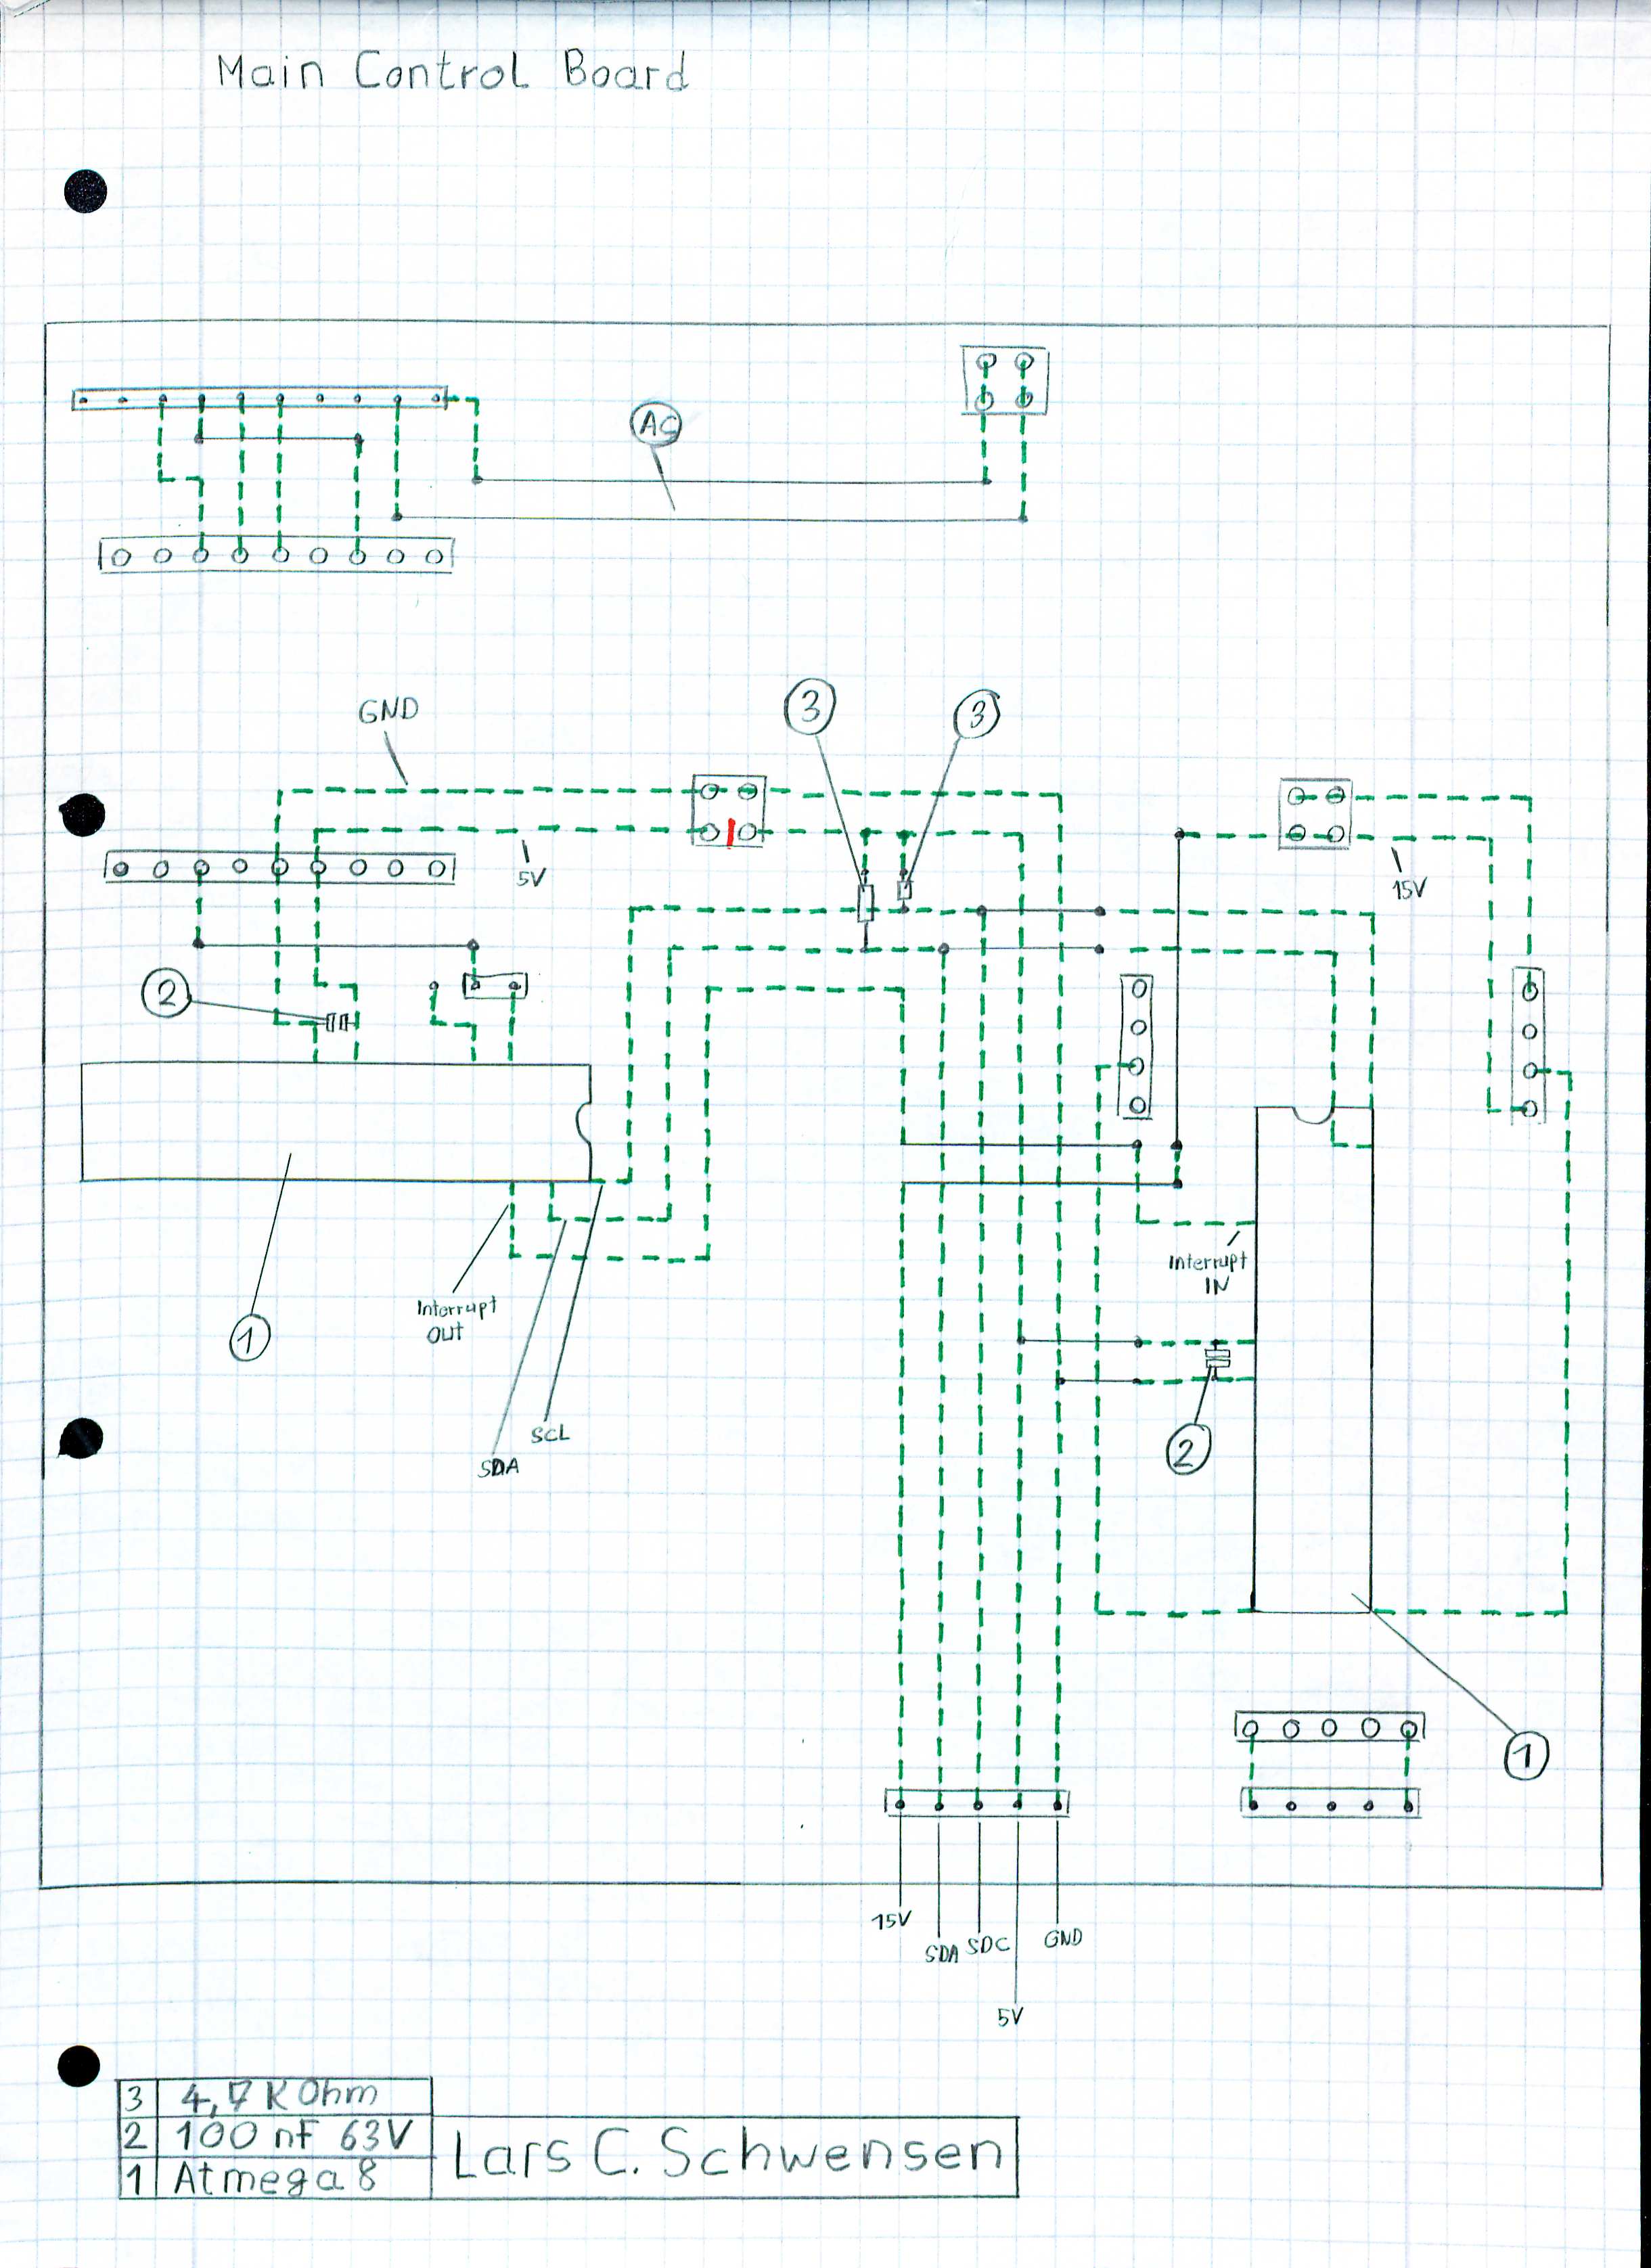 Main Control Board
AC
GND
3
3
5V
15V
2
Interrupt
IN
Interrupt
OUT
1
SCL
2
SDA
1
15V
SDA SDC GND
5V
3 4,7 K Ohm
2 100 nF 63V
1 Atmega 8
Lars C. Schwensen